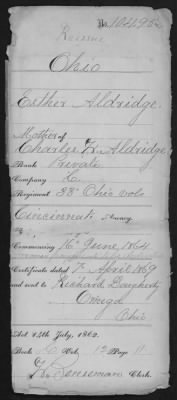 No. 104958
Ohio
Esther Aldridge.
Mother of
Charles W. Aldridge
Rank Private
Company H
Regiment 33" Ohio vols
Cincinnati Agency
Commencing 16" June, 1864
Certificate dated 7 April 1869
and sent to Richard Dougherty
Omega
Ohio
Act 14th July, 1862.
Book Vol. 12 Page 11
Clerk.